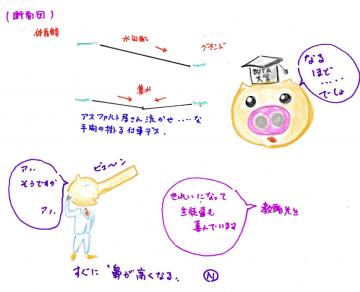 (断面図)
体育館
水勾配
グランド
集水
アスファルト屋さん泣かせ……な
手腕の揮る仕事デス。
BUTA
大官
なる
ほど
……
でしょ
ピューン
アハ
そうですか
アハ
きれいになって
生徒達も
喜んでいます
教頭先生
すぐに"鼻が高くなる。
N